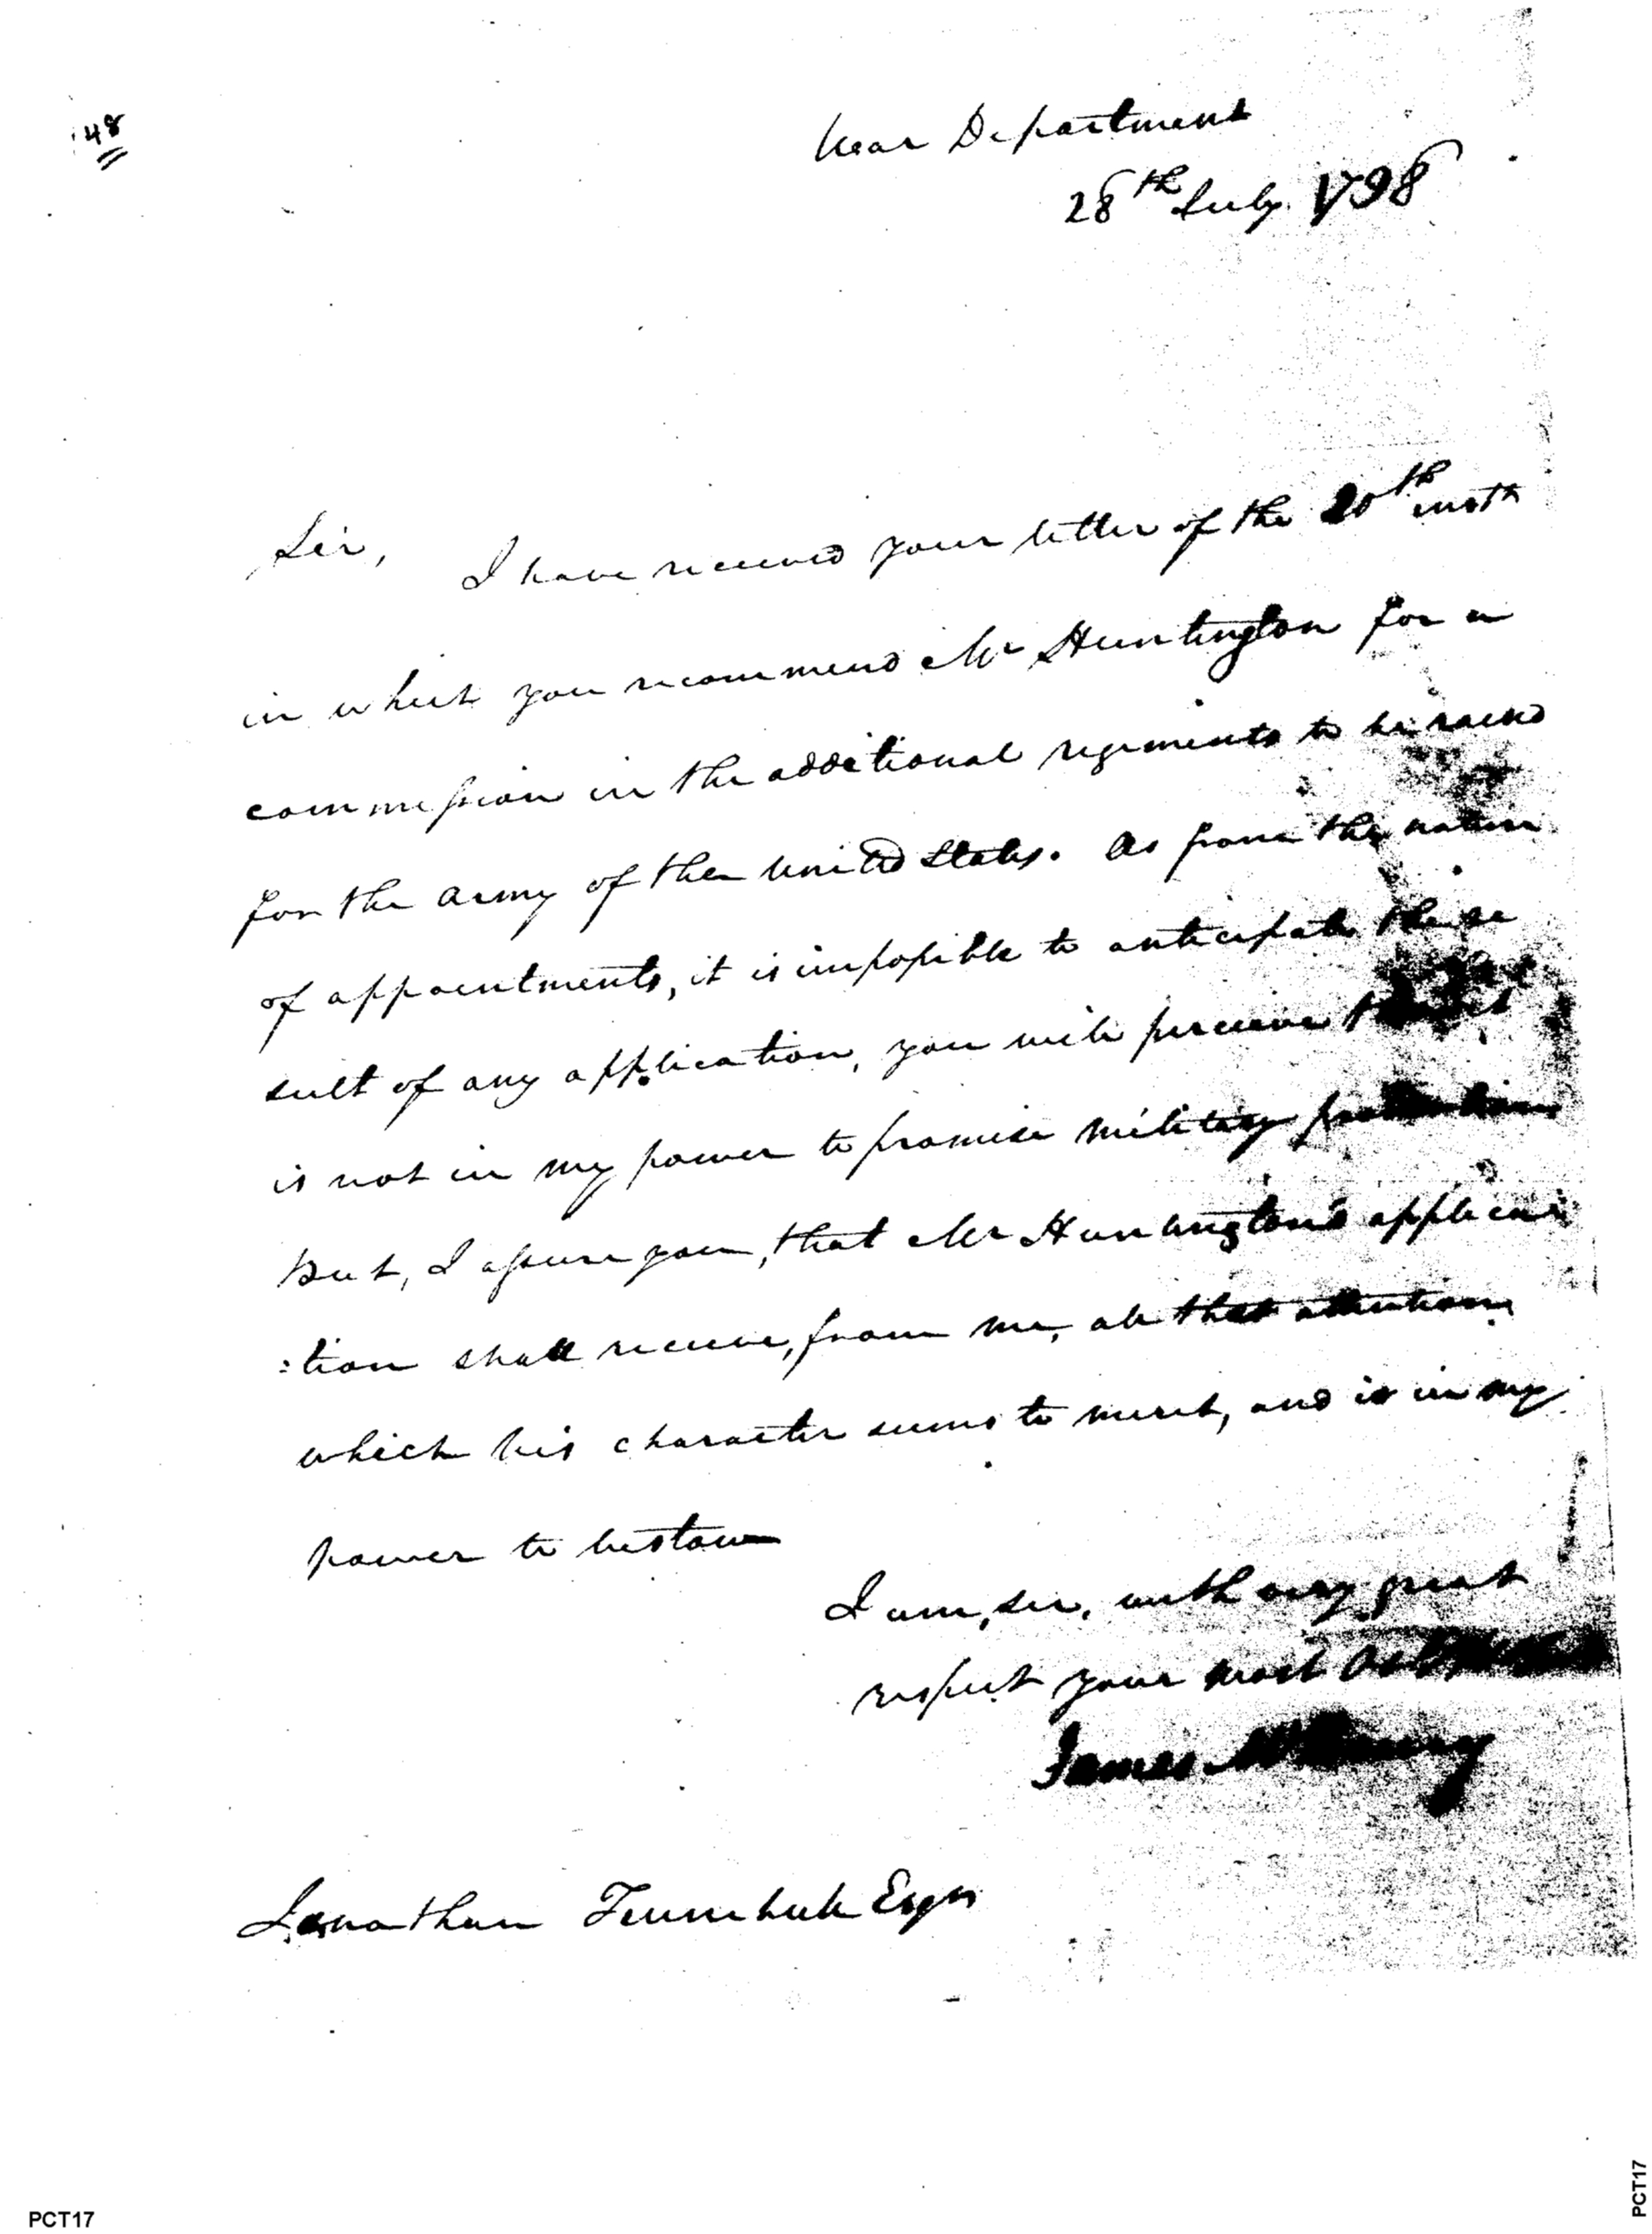 48
War Department
28th July. 1798
Sir, I have received your letter of the 20th inst
in which you recommend Mr Huntington for a
commission in the additional regiments to be raised
for the army of the United States. As from the nature
of appointments, it is impossible to anticipate the re
sult of any application, you will perceive that it
is not in my power to promise military
But, I assure you, that Mr Huntington's applica
:tion shall receive, from me, all that attention,
which his character seems to merit, and is in my
power to bestow
I am, sir, with very great
respect your most
James McHenry
Jonathan Trumbull Esqr
PCT17
PCT17